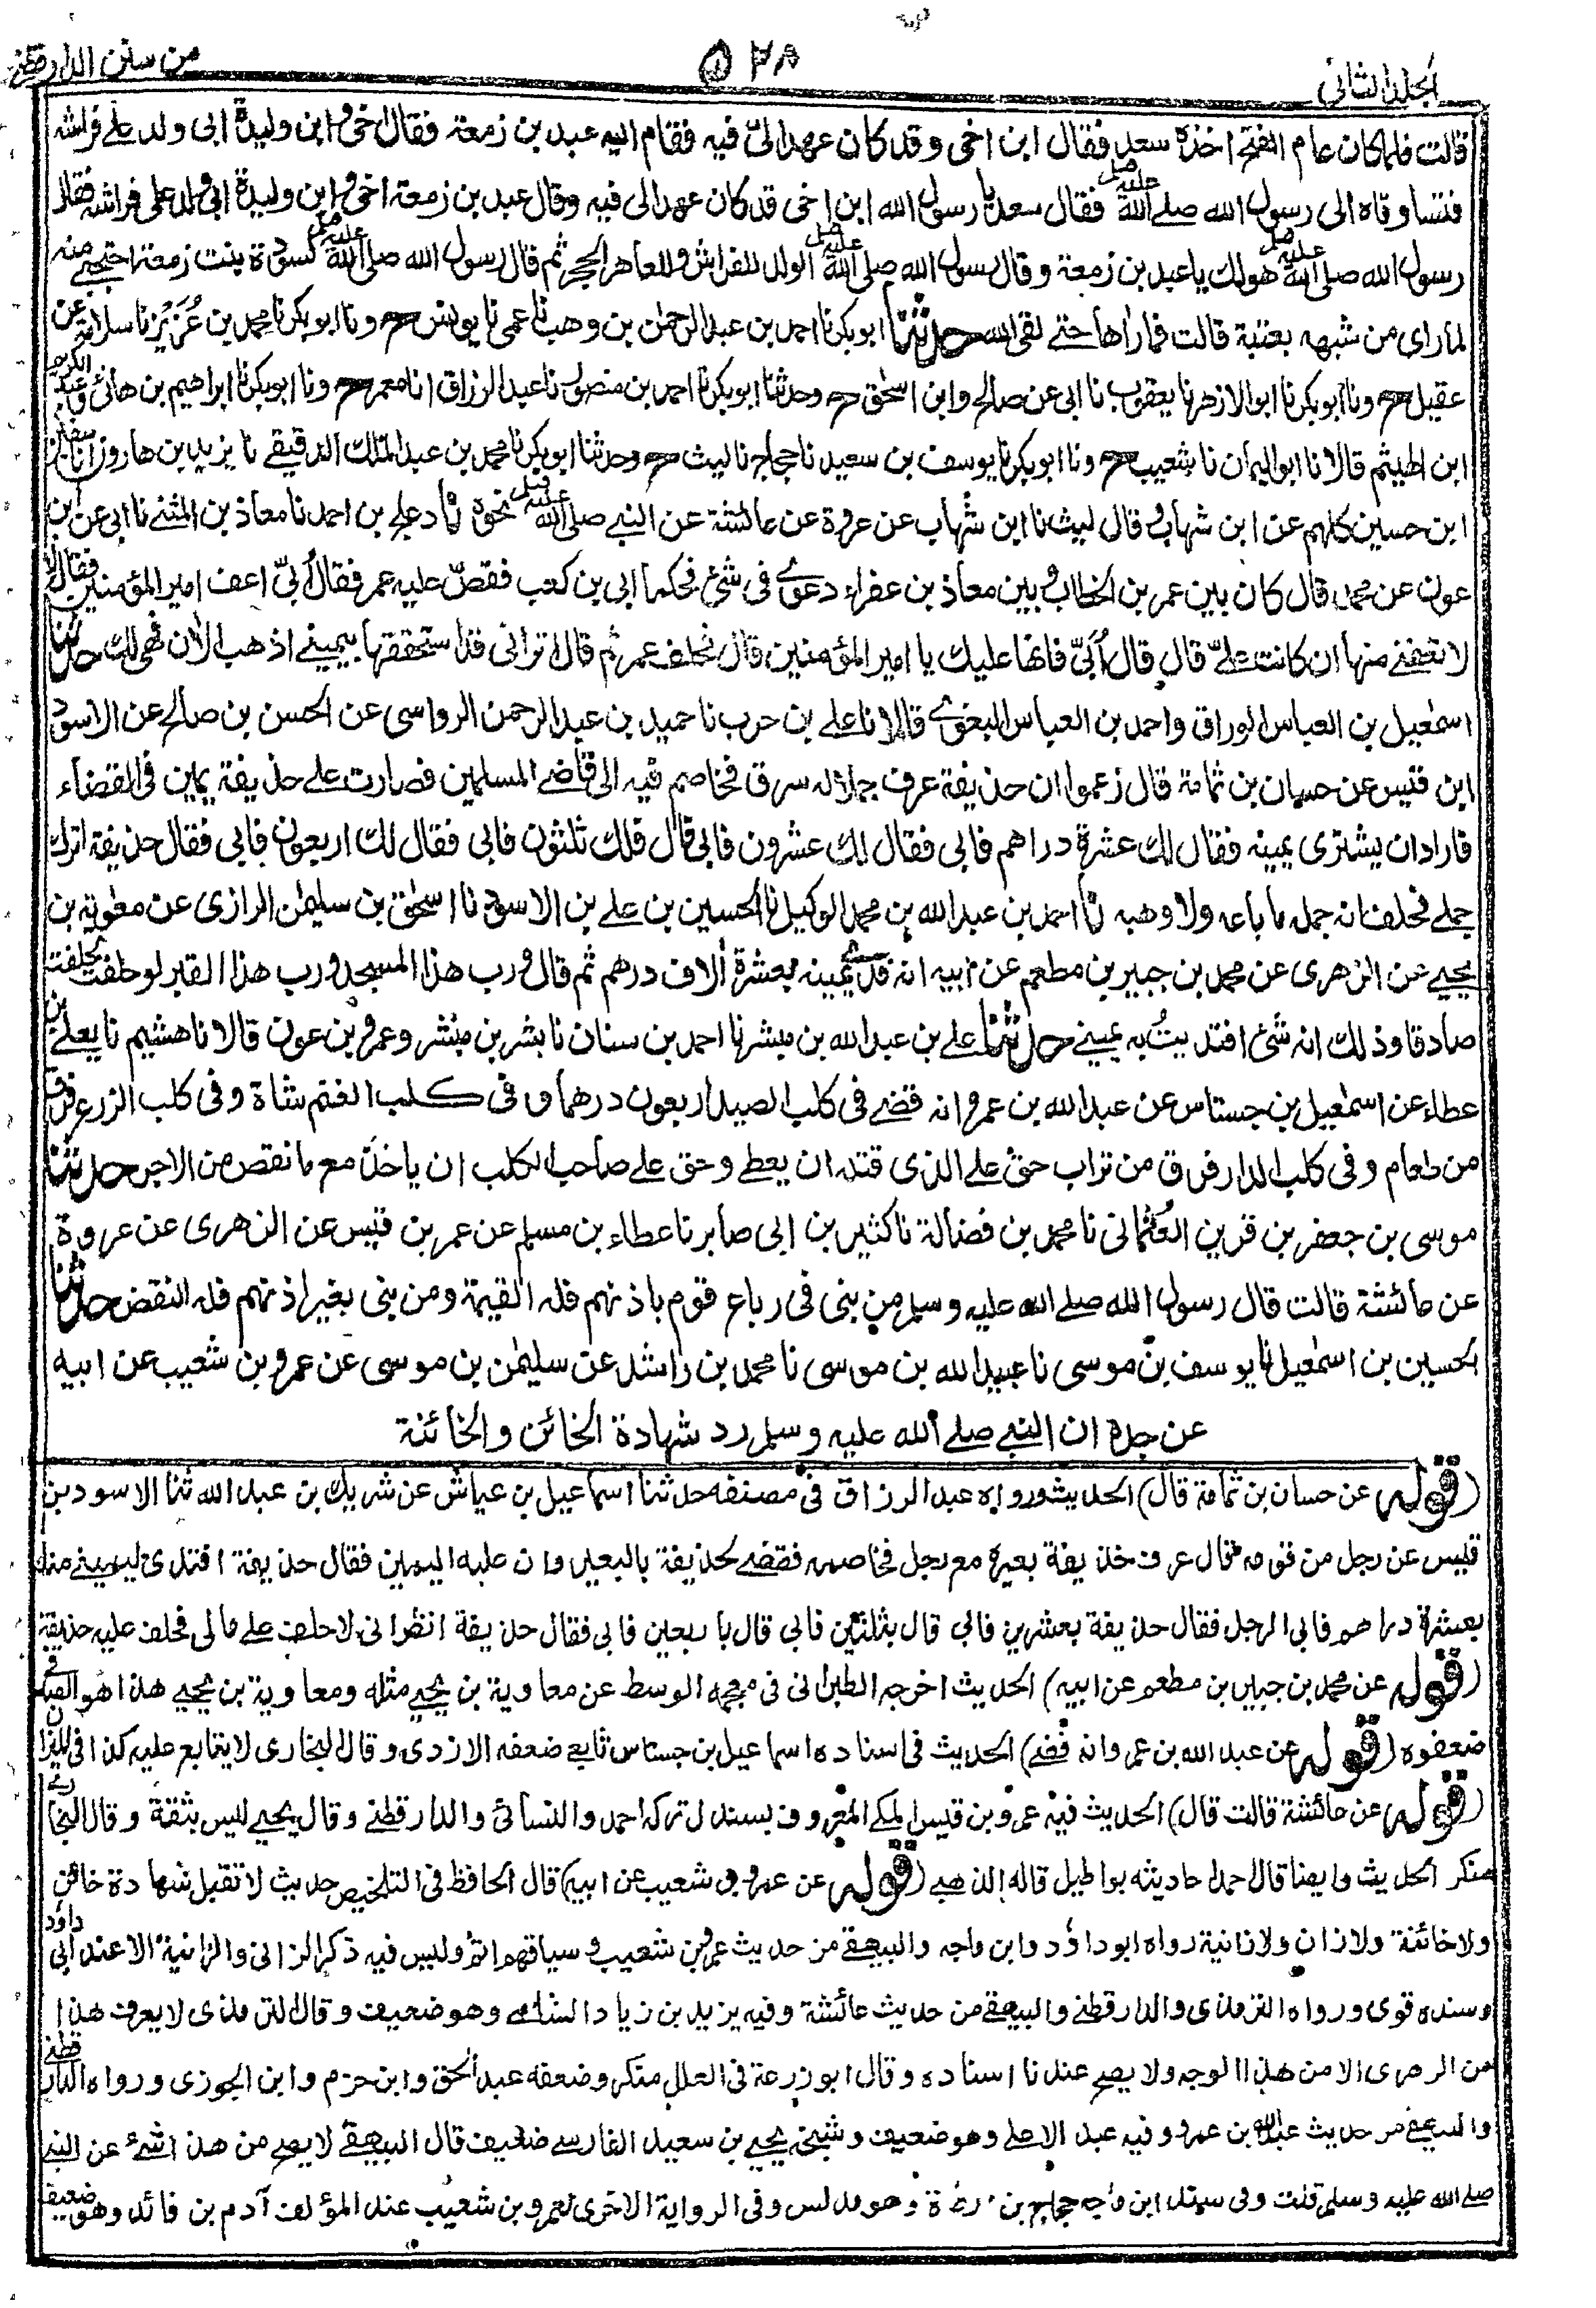 المجلد الثانی
۵۲۸
من سنن الدارقطنی
قالت فلما كان عام الفتح اخذه سعد فقال ابن اخی وقد كان عهد الیّ فیه فقام الیه عبد بن زمعة فقال اخی وابن ولیدة ابی ولد علے فراشه
فتساوقاه الی رسول الله صلے الله علیه وسلم فقال سعد یا رسول الله ابن اخی قد كان عهد الی فیه وقال عبد بن زمعة اخی وابن ولیدة ابی ولد علی فراشه فقال
رسول الله صلی الله علیه وسلم هو لك یا عبد بن زمعة وقال رسول الله صلی الله علیه وسلم الولد للفراش وللعاهر الحجر ثم قال رسول الله صلی الله علیه وسلم لسودة بنت زمعة احتجبی منه
لما رای من شبهه بعتبة قالت فما رأها حتے لقی الله حدثنا ابو بكر نا احمد بن عبد الرحمن بن وهب نا عمی نا یونس ح ونا ابو بكر نا محمد بن عُزَیْز نا سلامة عن
عقیل ح ونا ابو بكر نا ابو الازهر نا یعقوب نا ابی عن صالح وابن اسحٰق ح وحدثنا ابو بكر نا احمد بن منصور نا عبد الرزاق انا معمر ح ونا ابو بكر نا ابراهیم بن هانئ وعبد الكریم
ابن الهیثم قالا نا ابو الیمان نا شعیب ح ونا ابو بكر نا یوسف بن سعید نا حجاج نا لیث ح وحدثنا ابو بكر نا محمد بن عبد الملك الدقیقے نا یزید بن هارون انا سفیان
ابن حسین كلهم عن ابن شهاب وقال لیث نا ابن شهاب عن عروة عن عائشة عن النبے صلی الله علیه وسلم نحوه نا دعلج بن احمد نا معاذ بن المثنے نا ابی عن ابن
عون عن محمد قال كان بین عمر بن الخطاب وبین معاذ بن عفراء دعوے فی شئ فحكما ابی بن كعب فقصّ علیه عمر فقال اُبیّ اعف امیر المؤمنین فقال لا
لا تعفنے منها ان كانت علیّ قال قال اُبَیّ فانها علیك یا امیر المؤمنین قال فحلف عمر ثم قال اترانی قد استحققتها بیمینے اذهب الآن فهی لك حدثنا
اسمٰعیل بن العباس الوراق واحمد بن العباس البغوے قالا نا علے بن حرب نا حمید بن عبد الرحمن الرواسی عن الحسن بن صالح عن الاسود
ابن قیس عن حسان بن ثمامة قال زعموا ان حذیفة عرف جملا له سرق فخاصم فیه الی قاضے المسلمین فصارت علے حذیفة یمین فی القضاء
فاراد ان یشتری یمینه فقال لك عشرة دراهم فابی فقال لك عشرون فابی قال فلك ثلثون فابی فقال لك اربعون فابی فقال حذیفة اترك
جملے فحلف انه جمله ما باعه ولا وهبه نا احمد بن عبد الله بن محمد الوكیل نا الحسین بن علے بن الاسود نا اسحٰق بن سلیمٰن الرازی عن معٰویة بن
یحیے عن الزهری عن محمد بن جبیر بن مطعم عن ابیه انه فدے یمینه بعشرة اٰلاف درهم ثم قال ورب هذا المسجد ورب هذا القبر لو حلفت لحلفت
صادقا وذلك انه شئ افتدیت به یمینے حدثنا علے بن عبد الله بن مبشر نا احمد بن سنان نا بشر بن مبشر وعمرو بن عون قالا نا هشیم نا یعلے بن
عطاء عن اسمٰعیل بن جستاس عن عبد الله بن عمرو انه قضے فی كلب الصید اربعون درهما وفی كلب الغنم شاة وفی كلب الزرع فرق
من طعام وفی كلب الدار فرق من تراب حق علے الذی قتله ان یعطے وحق علے صاحب الكلب ان یاخذ مع ما نقص من الاجر حدثنا
موسی بن جعفر بن قرین العُثمانی نا محمد بن فضالة نا كثیر بن ابی صابر نا عطاء بن مسلم عن عمر بن قیس عن الزهری عن عروة
عن عائشة قالت قال رسول الله صلے الله علیه وسلم من بنی فی رباع قوم باذنهم فله القیمة ومن بنی بغیر اذنهم فله النقض حدثنا
الحسین بن اسمٰعیل نا یوسف بن موسی نا عبید الله بن موسی نا محمد بن راشد عن سلیمٰن بن موسی عن عمرو بن شعیب عن ابیه
عن جده ان النبے صلے الله علیه وسلم رد شهادة الخائن والخائنة
(قوله عن حسان بن ثمامة قال) الحدیث ورواه عبد الرزاق فی مصنفه حدثنا اسماعیل بن عیاش عن شریك بن عبد الله ثنا الاسود بن
قیس عن رجل من قومه قال عرف حذیفة بعیره مع رجل فخاصمه فقضے لحذیفة بالبعیر وان علیه الیمین فقال حذیفة افتدی یمینے منك
بعشرة دراهم فابی الرجل فقال حذیفة بعشرین فابی قال بثلثین فابی قال باربعین فابی فقال حذیفة انظر انی لا حلف علے مالی فحلف علیه حذیفة
(قوله عن محمد بن جبیر بن مطعم عن ابیه) الحدیث اخرجه الطبرانی فی معجمه الوسط عن معاویة بن یحیے مثله ومعاویة بن یحیے هذا هو الصدفے
ضعفوه (قوله عن عبد الله بن عمر وانه قضے) الحدیث فی اسناده اسماعیل بن جستاس تابعے ضعفه الازدی وقال البخاری لا یتابع علیه كذا فی المیزان
(قوله عن عائشة قالت قال) الحدیث فیه عمرو بن قیس المكے المعروف بسندل تركه احمد والنسائی والدارقطنے وقال یحیے لیس بثقة وقال البخاری
منكر الحدیث وایضا قال احمد احادیثه بواطیل قاله الذهبے (قوله عن عمرو بن شعیب عن ابیه) قال الحافظ فی التلخیص حدیث لا تقبل شهادة خائن
ولا خائنة ولا زان ولا زانیة رواه ابو داؤد وابن ماجه والبیهقے من حدیث عمرو بن شعیب وسیاقهم اتم ولیس فیه ذكر الزانی والزانیة الا عند ابی داؤد
وسنده قوی ورواه الترمذی والدارقطنے والبیهقے من حدیث عائشة وفیه یزید بن زیاد الشامے وهو ضعیف وقال الترمذی لا یعرف هذا
من الزهری الا من هذا الوجه ولا یصح عندنا اسناده وقال ابو زرعة فی العلل منكر وضعفه عبد الحق وابن حزم وابن الجوزی ورواه الدارقطنے
والبیهقے من حدیث عبد الله بن عمر وفیه عبد الاعلے وهو ضعیف وشیخه یحیے بن سعید الفارسے ضعیف قال البیهقے لا یصح من هذا شئ عن النبے
صلے الله علیه وسلم قلت وفی سند ابن ماجه حجاج بن ارطاة وهو مدلس وفی الروایة الاخری لعمرو بن شعیب عند المؤلف آدم بن فائد وهو ضعیف